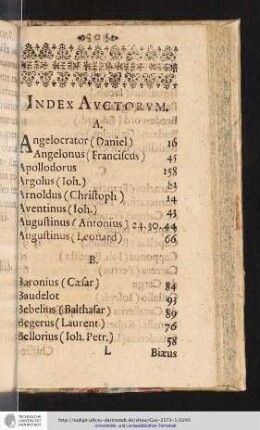 INDEX AVCTORVM.
A.
Angelocrator (Daniel) 16
Angelonus (Franciscus) 45
Apollodorus 158
Argolus (Ioh.)
Arnoldus (Christoph) 14
Aventinus (Ioh.) 43
Augustinus (Antonius) 24.30.44
Augustinus (Leonard) 66
B.
Baronius (Cæsar) 84
Baudelot 93
Bebelius (Balthasar) 89
Begerus (Laurent.) 76
Bellorius (Ioh. Petr.) 58
L Biæus
TECHNISCHE UNIVERSITÄT DARMSTADT
Universitäts- und Landesbibliothek Darmstadt